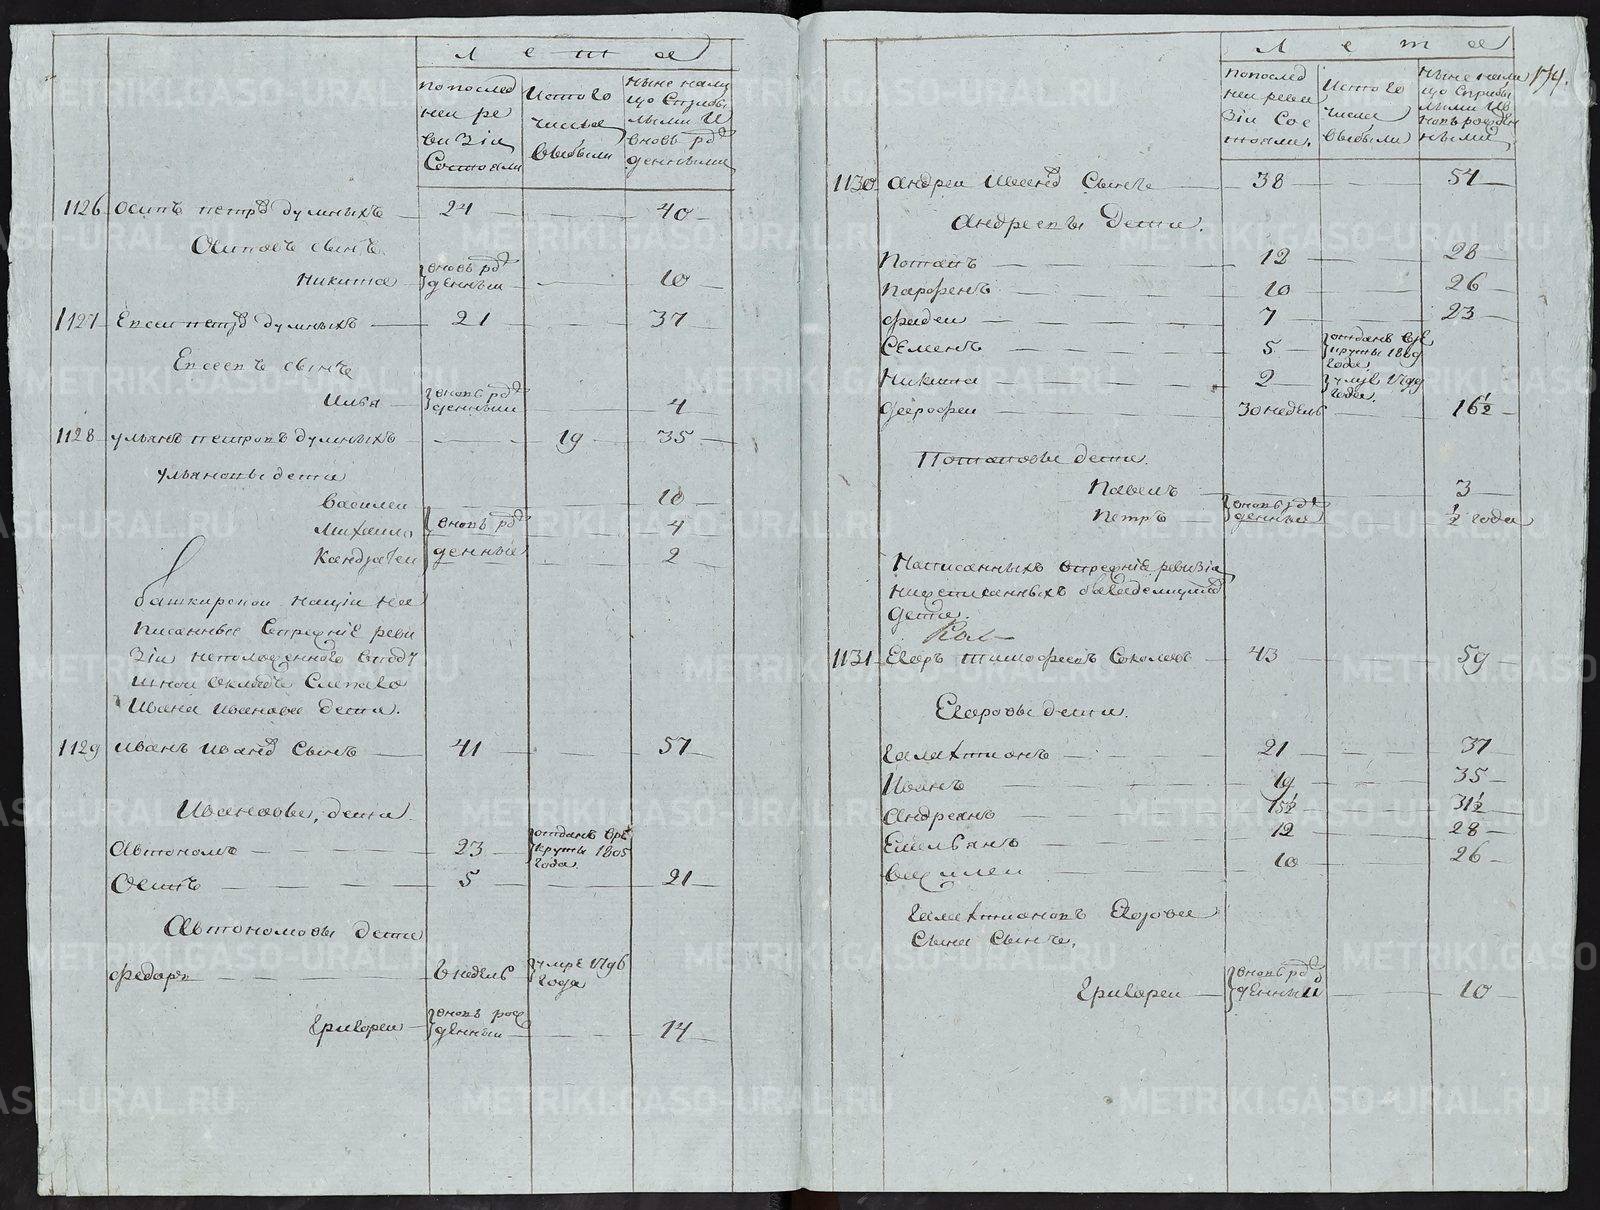 Лета
По послед
ней ре
визіи
Состояли
Исто го
числа
выбыли
Ныне нали
цо Спрібы
лыми И
вновь рож
денными
1126 Осипъ петровъ думныхъ 24 40
Осиповъ сынъ
Никита вновь рож
денный 10
1127 Евсеи петровъ думныхъ 21 37
Евсеевъ сынъ
Илья вновь рож
денный 4
1128 ульянъ петровъ думныхъ 19 35
ульяновы дети
Василеи 10
Михаило вновь рож 4
Кандратеи денныи 2
башкирской націи На
писанные Впрежнѣ реви
зіи неположенного вподу
шной окладъ Слепаго
Ивана Иванова дети.
1129 Иванъ Ивановъ Сынъ 41 57
Ивановы дети
Автономъ 23 отданъ врѣ
круты 1805
года
Осипъ 5 21
Автономовы дети
Федоръ 6 недель умре 1796
года
Григореи вновь рож
денный 14
Лета
174.
По послед
ней реви
зіи Сос
тояли.
Исто го
числа
выбыли
Ныне нали
цо Сприбы
лыми И в
новь рожден
ными
1130 Андреи Ивановъ Сынъ 38 54
Андреевы Дети.
Потапъ 12 28
Парфенъ 10 26
фадеи 7 23
Сѣменъ 5 отданъ врѣ
круты 1809
года
Никита 2 умре 1799
года.
Дорофеи 30 недель 16½
Потаповы дети.
Павелъ 3
Петръ вновь рож
денныи ½ года
Написанныхъ впрежнѣ ревизіи
дети.
1131 Егоръ тимофеевъ Соколовъ 43 59
Егоровы дети.
Галактионъ 21 37
Иванъ 19 35
Андреянъ 15½ 31½
Емельянъ 12 28
Василеи 10 26
Галактионовъ Егорова
Сына Сынъ,
Григореи вновь рож
денный 10